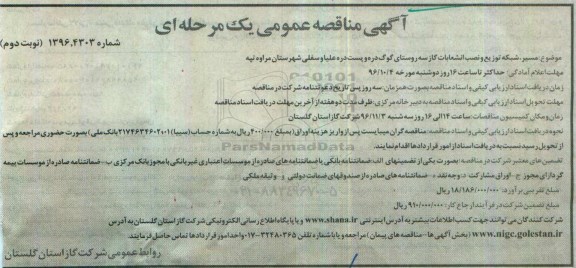 آگهی مناقصه عمومی یک مرحله ای
شماره ۱۳۹۶,۴۳۰۳ (نوبت دوم)
موضوع: مسیر، شبکه توزیع و نصب انشعابات گاز سه روستای گوک دره و پست دره علیا و سفلی شهرستان مراوه تپه
مهلت اعلام آمادگی: حداکثر تا ساعت ۱۶ روز دوشنبه مورخه ۹۶/۱۰/۴
زمان دریافت اسناد ارزیابی کیفی و اسناد مناقصه بصورت همزمان: سه روز پس از تاریخ دعوتنامه شرکت در مناقصه
مهلت تحویل اسناد ارزیابی کیفی و اسناد مناقصه به دبیرخانه مرکزی: ظرف مدت دو هفته از آخرین مهلت دریافت اسناد مناقصه
زمان و مکان کمیسیون مناقصات: ساعت ۱۴ الی ۱۶ روز سه شنبه ۹۶/۱۱/۳ شرکت گاز استان گلستان
نحوه دریافت اسناد ارزیابی کیفی و اسناد مناقصه: مناقصه گران میبایست پس از واریز هزینه اوراق (بمبلغ ۲۰۰/۰۰۰ ریال به شماره حساب (سیبا) ۲۱۷۴۶۳۴۶۰۲۰۰۱ بانک ملی) بصورت حضوری مراجعه و پس
از تحویل رسید نسبت به دریافت اسناد از امور قراردادها اقدام نمایند.
تضمین های معتبر شرکت در مناقصه: بصورت یکی از تضمینهای الف: ضمانتنامه بانکی یا ضمانتنامه های صادره از موسسات اعتباری غیر بانکی با مجوز بانک مرکزی ب- ضمانتنامه صادره از موسسات بیمه
گر دارای مجوز ج- اوراق مشارکت د- وجه نقد ه- ضمانتنامه های صادره از صندوقهای ضمانت دولتی و- وثیقه ملکی
مبلغ تقریبی برآورد: ۱۸/۱۸۶/۰۰۰/۰۰۰ ریال
مبلغ تضمین شرکت در فرآیند ارجاع کار: ۹۱۰/۰۰۰/۰۰۰ ریال
شرکت کنندگان می توانند جهت کسب اطلاعات بیشتر به آدرس اینترنتی www.shana.ir و یا پایگاه اطلاع رسانی الکترونیکی شرکت گاز استان گلستان به آدرس
www.nigc.golestan.ir (بخش آگهی ها-مناقصه های پیمان) مراجعه و یا با شماره تلفن ۳۲۴۸۰۳۶۵-۰۱۷ واحد امور قراردادها تماس حاصل فرمایند.
روابط عمومی شرکت گاز استان گلستان